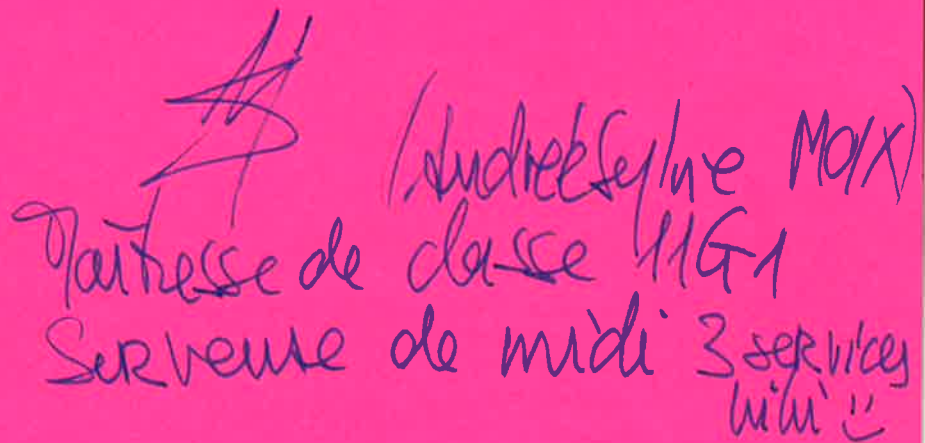 (AndréeSylvie Marx)
Maîtresse de classe 11G1
Serveuse de midi 3 services
hihi :)